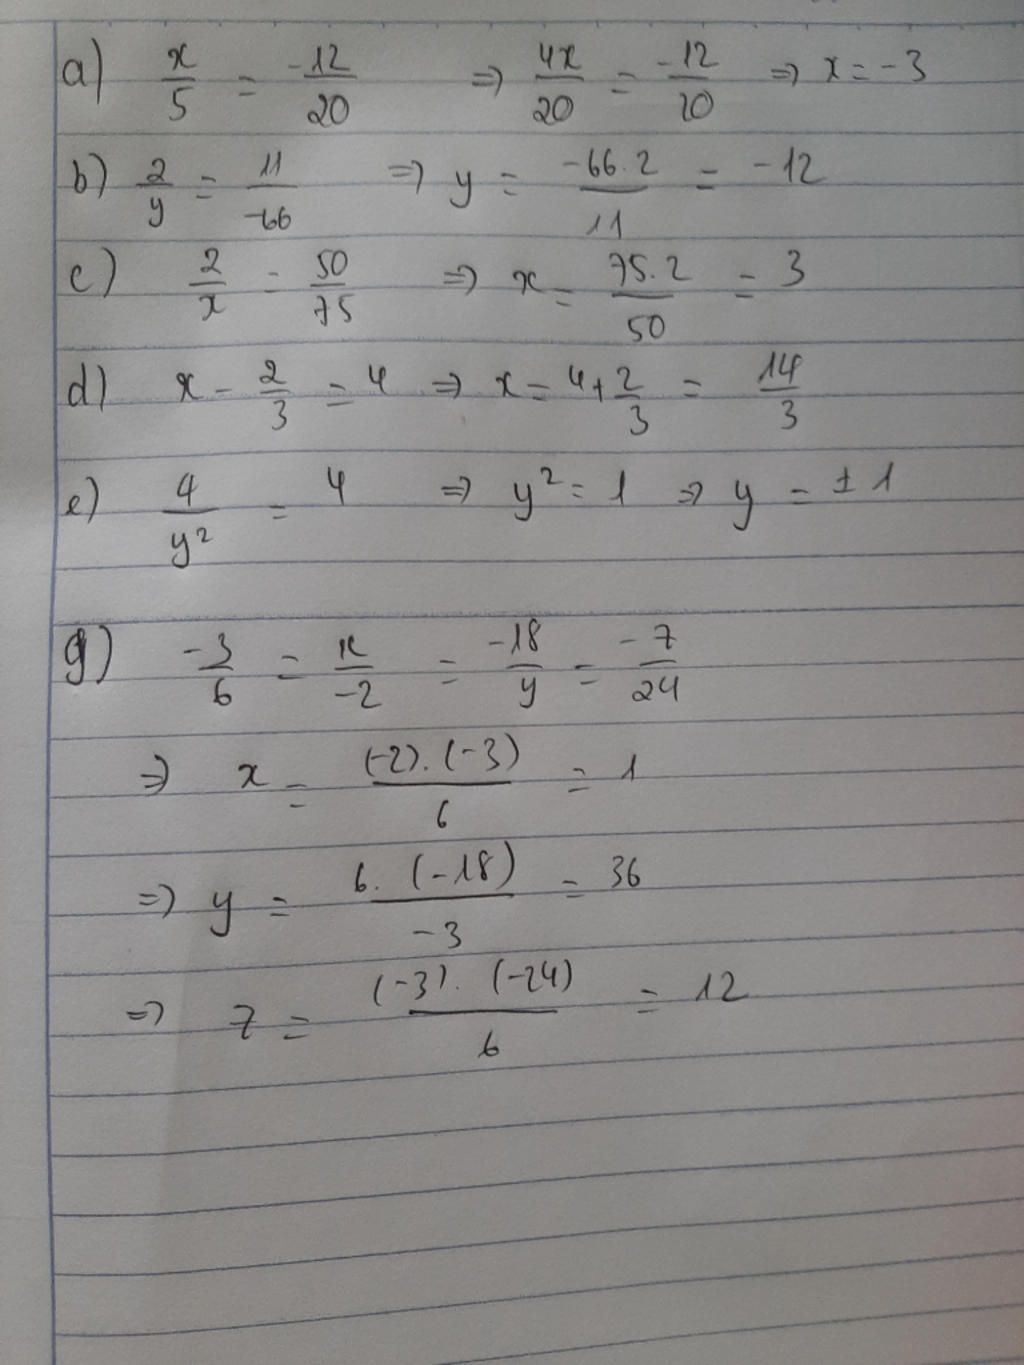 a) x/5 = -12/20 => 4x/20 = -12/20 => x = -3
b) 2/y = 11/-66 => y = -66.2/11 = -12
c) 2/x = 50/75 => x = 75.2/50 = 3
d) x - 2/3 = 4 => x = 4 + 2/3 = 14/3
e) 4/y² = 4 => y² = 1 => y = ±1
g) -3/6 = x/-2 = -18/y = -z/24
=> x = (-2).(-3)/6 = 1
=> y = 6.(-18)/-3 = 36
=> z = (-3).(-24)/6 = 12